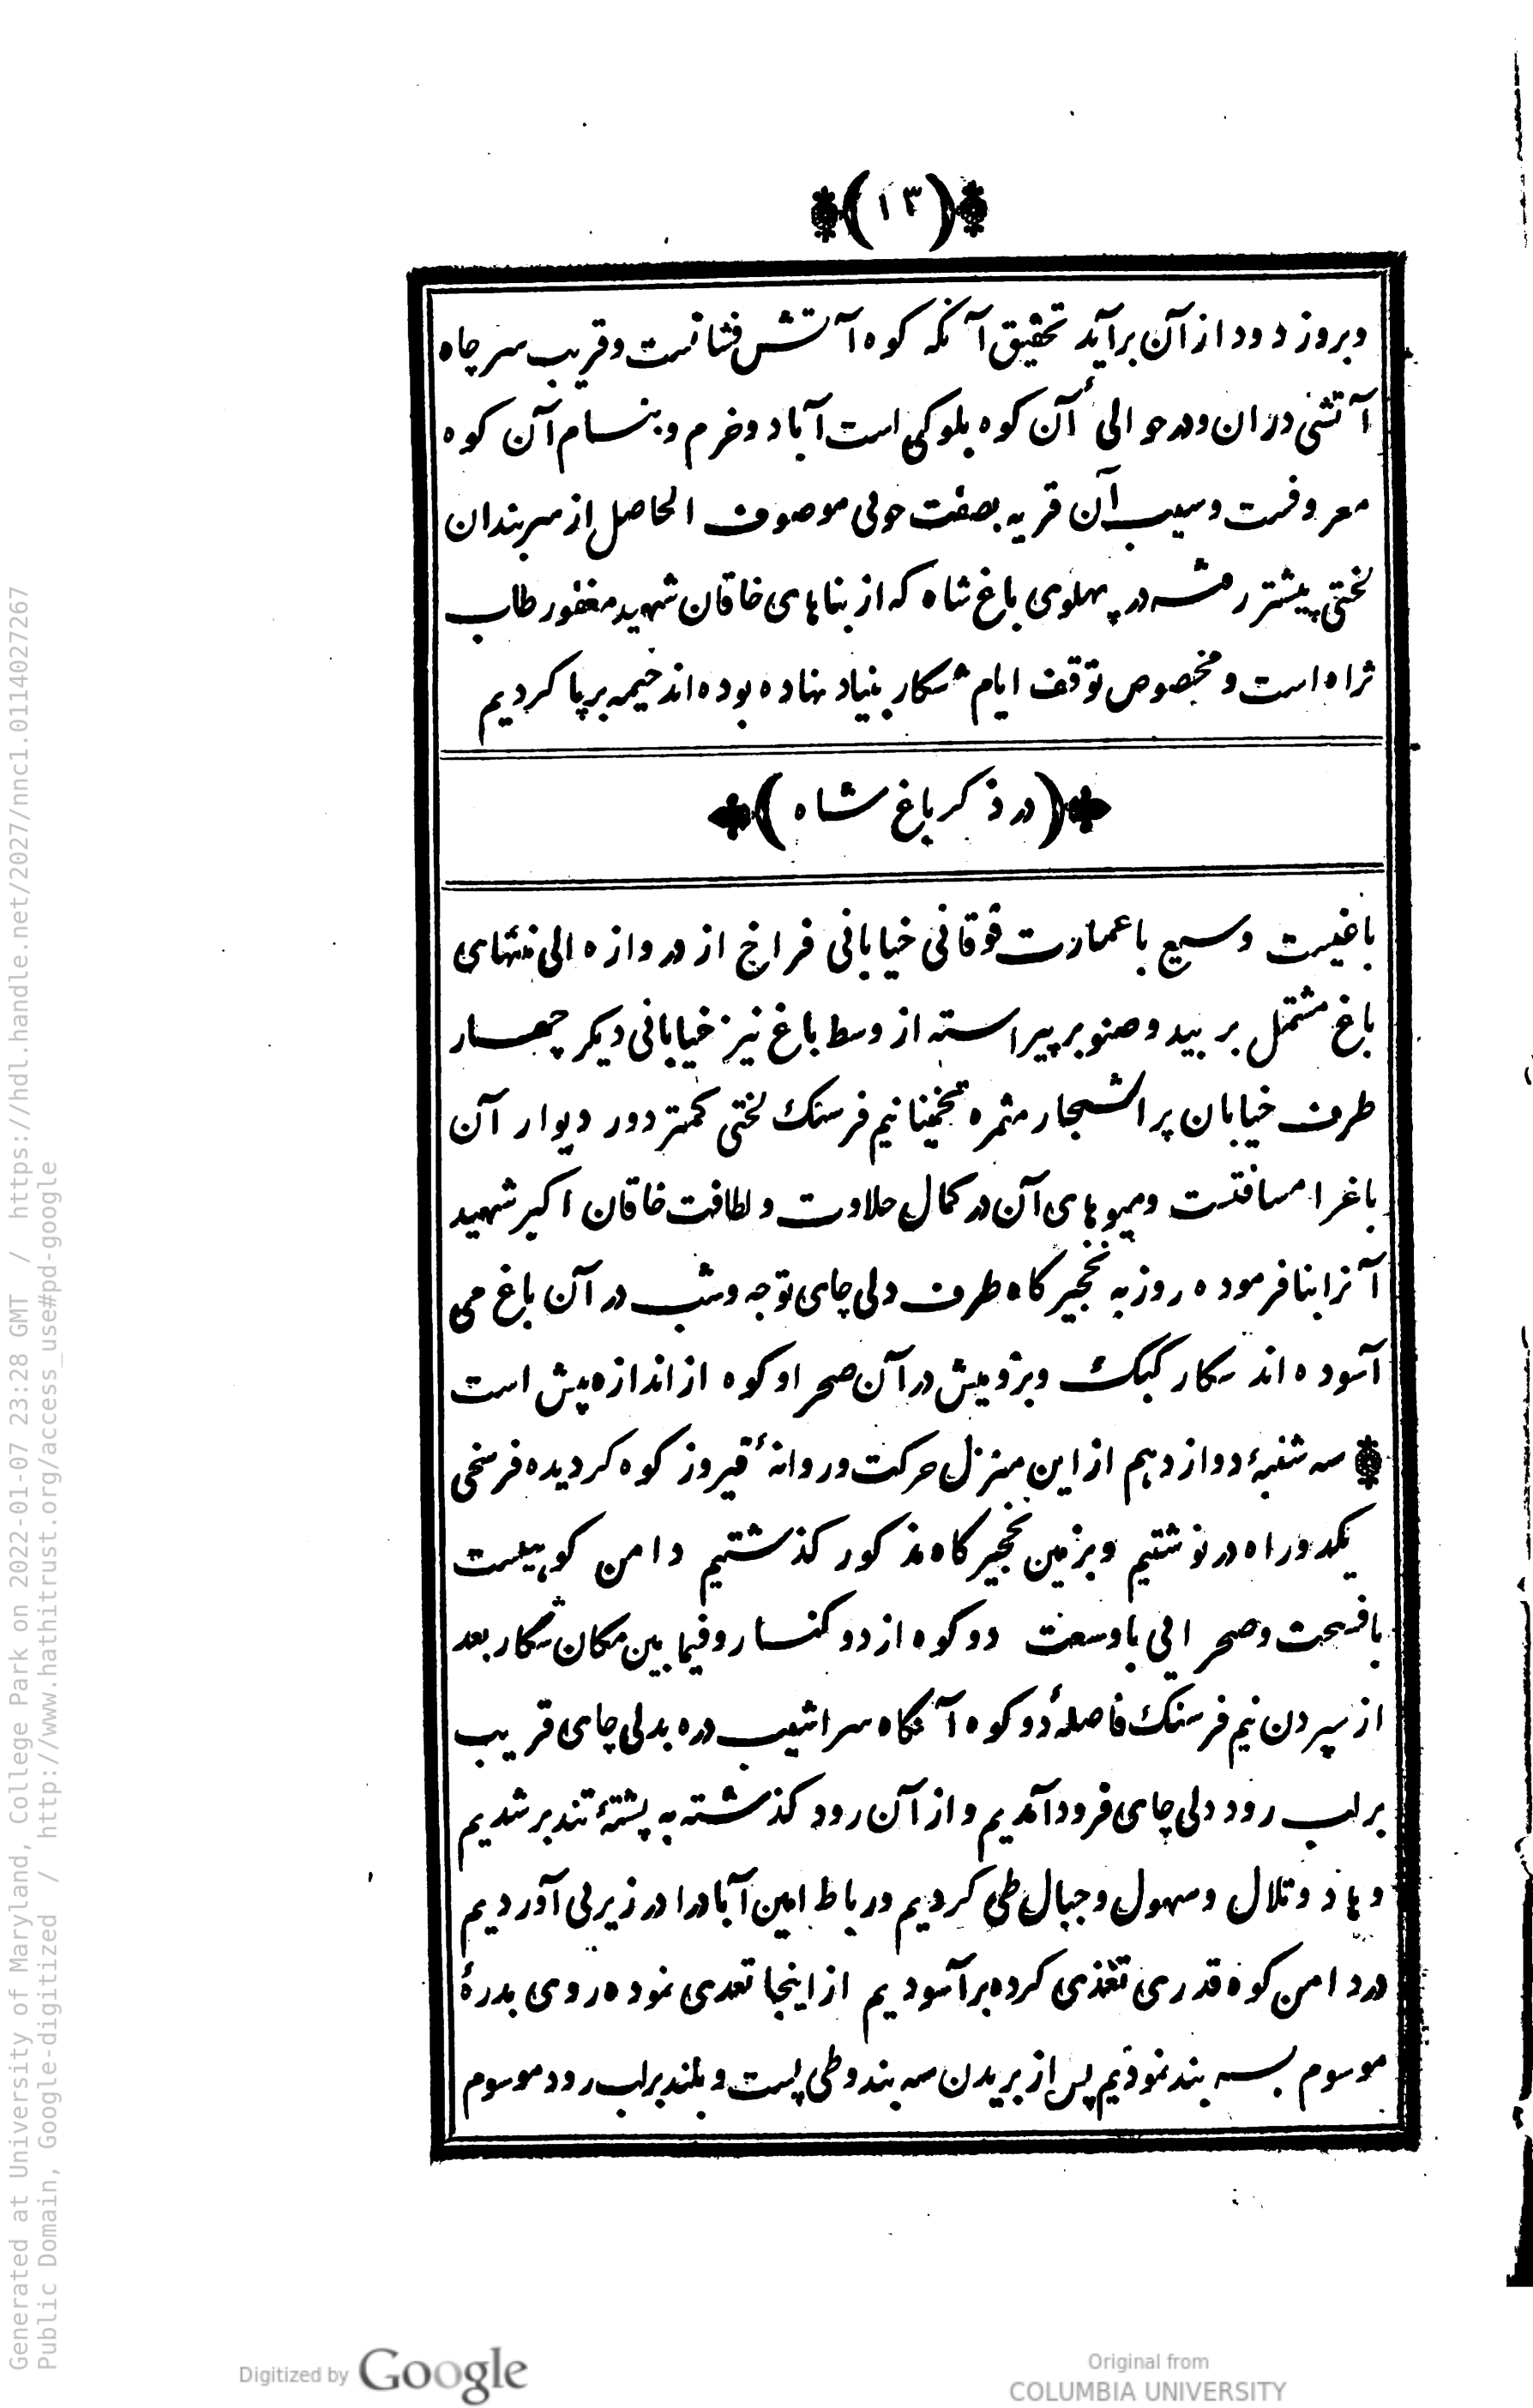 (۱۳)
وبروز دود از آن برآید تحقیق آنکه کوه آتش فشانست وقریب سر چاه
آتشی دران ودر حوالیٔ آن کوه بلوکی است آباد وخرم وبنام آن کوه
معروفست وسیب آن قریه بصفت خوبی موصوف الحاصل از سربندان
لختی پیشتر رفته در پهلوی باغ شاه که از بناهای خاقان شهید مغفور طاب
ثراه است و مخصوص توقف ایام شکار بنیاد نهاده بوده اند خیمه برپا کردیم
(در ذکر باغ شاه)
باغیست وسیع با عمارت فوقانی خیابانی فراخ از دروازه الی منتهای
باغ مشتمل بر بید وصنوبر پیراسته از وسط باغ نیز خیابانی دیکر چهار
طرف خیابان پر اشجار مثمره تخمینا نیم فرسنک لختی کمتر دور دیوار آن
باغرا مسافتست ومیوهای آن در کمال حلاوت و لطافت خاقان اکبر شهید
آنرا بنا فرموده روز به نخجیرکاه طرف دلی چای توجه وشب در آن باغ می
آسوده اند شکار کبک وبز و میش در آن صحرا و کوه از اندازه بیش است
سه شنبهٔ دوازدهم از این منزل حرکت و روانهٔ فیروز کوه کردیده فرسخی
یکدو راه در نوشتیم وبزمین نخجیرکاه مذکور کذشتیم دامن کوهیست
با فسحت وصحرائی با وسعت دو کوه از دو کنار وفیما بین مکان شکار بعد
از سپردن نیم فرسنک فاصلهٔ دو کوه آنگاه سراشیب دره بدلی چای قریب
بر لب رود دلی چای فرود آمدیم و از آن رود کذشته به پشتهٔ تند بر شدیم
وهاد وتلال وسهول وجبال طی کردیم ورباط امین آباد را در زیر پی آوردیم
در دامن کوه قدری تغذی کرده برآسودیم از اینجا تعدی نموده روی بدرهٔ
موسوم بسه بند نمودیم پس از بریدن سه بند وطی پست و بلند بر لب رود موسوم
Generated at University of Maryland, College Park on 2022-01-07 23:28 GMT / https://hdl.handle.net/2027/nnc1.0114027267
Public Domain, Google-digitized / http://www.hathitrust.org/access_use#pd-google
Digitized by Google
Original from
COLUMBIA UNIVERSITY